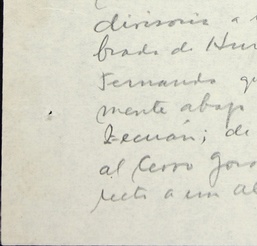 divisoria a
brada de Hu
Fernando qu
mente abajo
Zecuán; de
al Cerro Gor
recta a un al